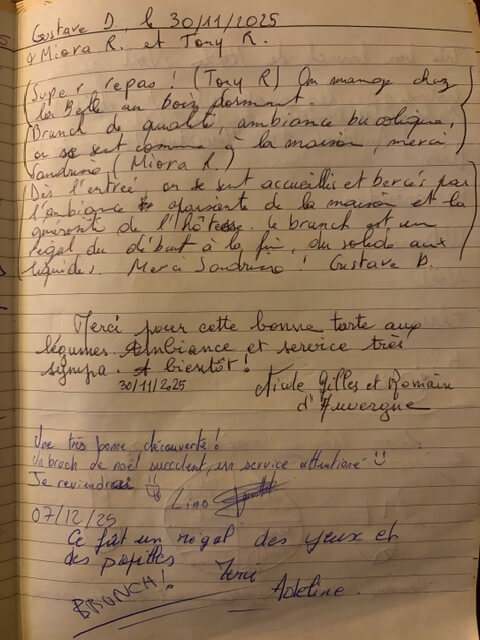 Gustave D, le 30/11/2025
& Miora R. et Tony R.
Super repas ! (Tony R) On mange chez
la Belle au bois dormant.
Brunch de qualité, ambiance bucolique,
on se sent comme à la maison, merci
Sandrine (Miora R.)
Dès l'entrée on se sent accueillis et bercés par
l'ambiance apaisante de la maison et la
générosité de l'hôtesse. Le brunch est un
régal du début à la fin, du solide aux
liquides. Merci Sandrine ! Gustave D.
Merci pour cette bonne tarte aux
légumes. Ambiance et service très
sympa. A bientôt !
30/11/2025
Nicole Gilles et Romain
d'Auvergne
Une très bonne découverte !
Un brach de noël succulent, un service attentionné
Je reviendrai
Lino
07/12/25
Ce fut un régal des yeux et
des papilles
BRUNCH ! Merci
Adeline.